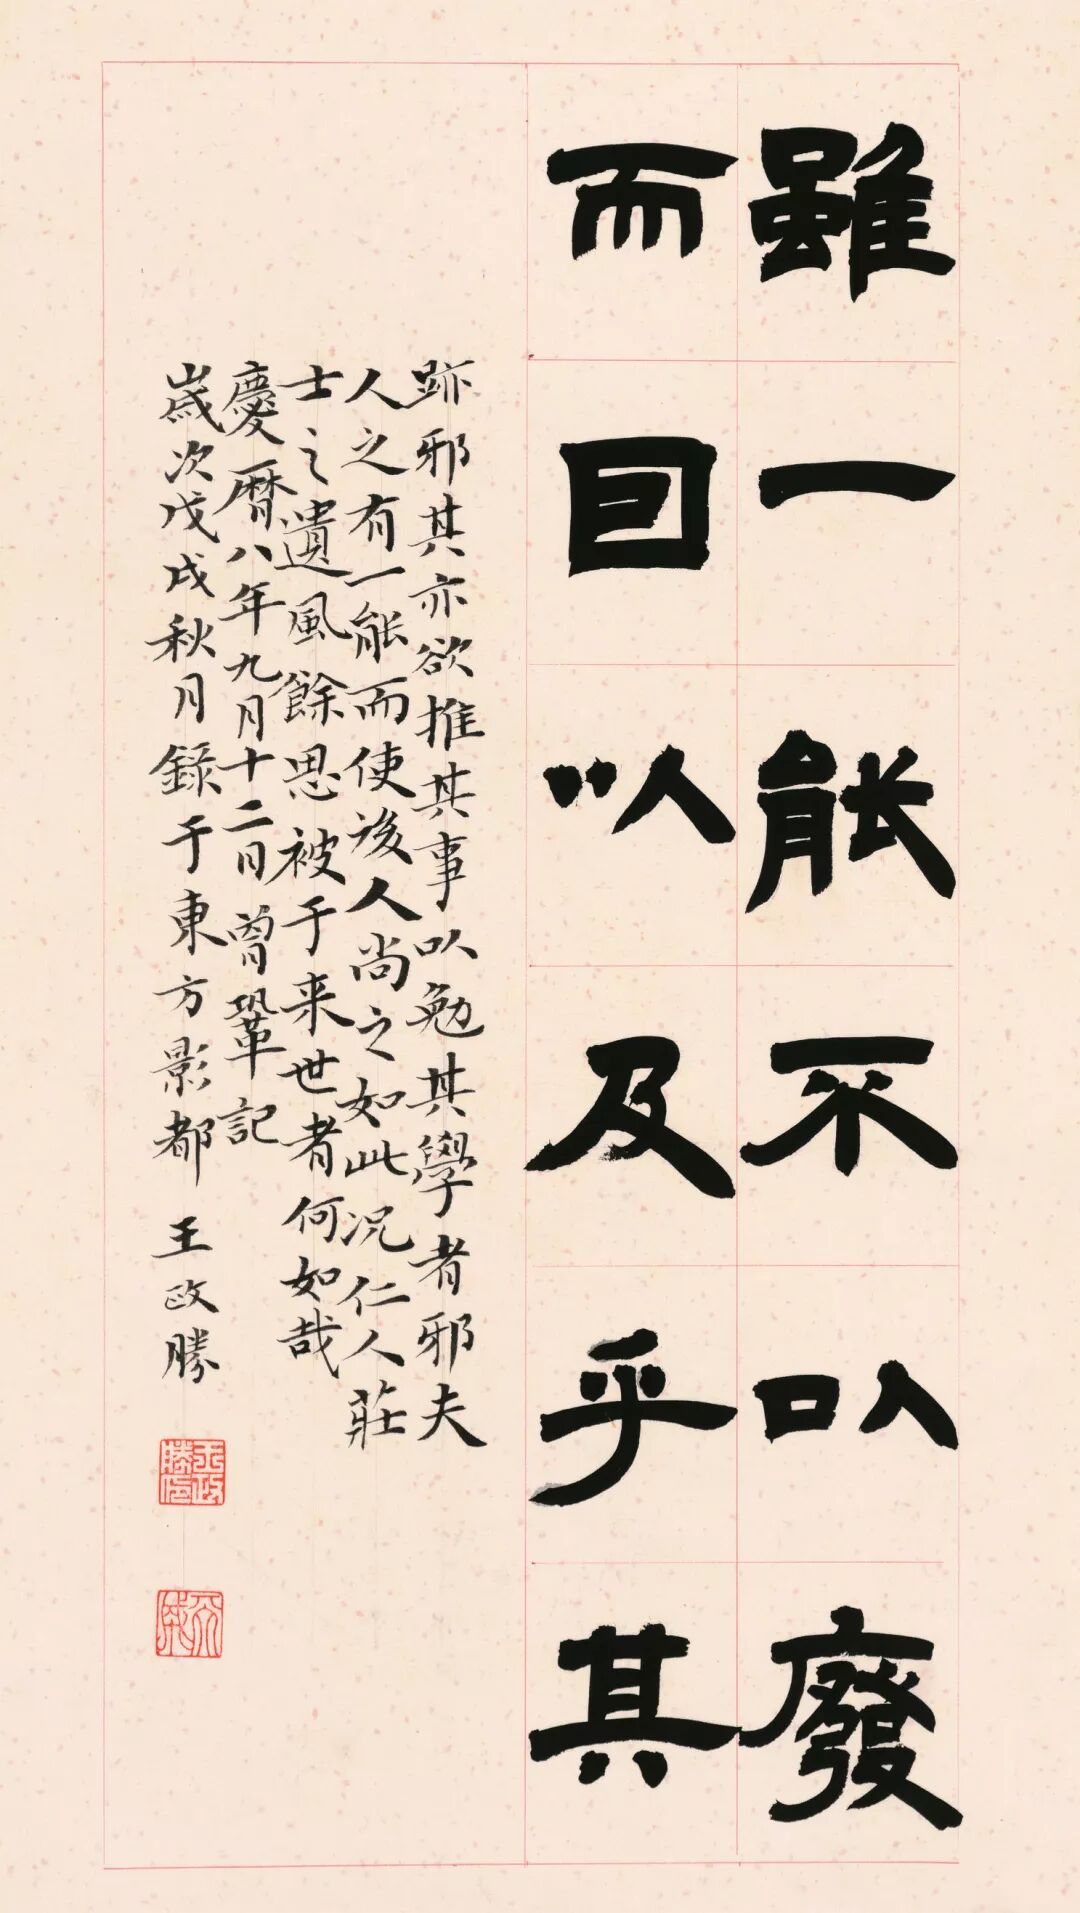 雖一能不以廢
而囙以及乎其
跡邪其亦欲推其事以勉其學者邪夫
人之有一能而使後人尚之如此况仁人莊
士之遺風餘思被于来世者何如哉
慶曆八年九月十二日曾鞏記
歲次戊戌秋月錄于東方影都 王政勝
王政勝印